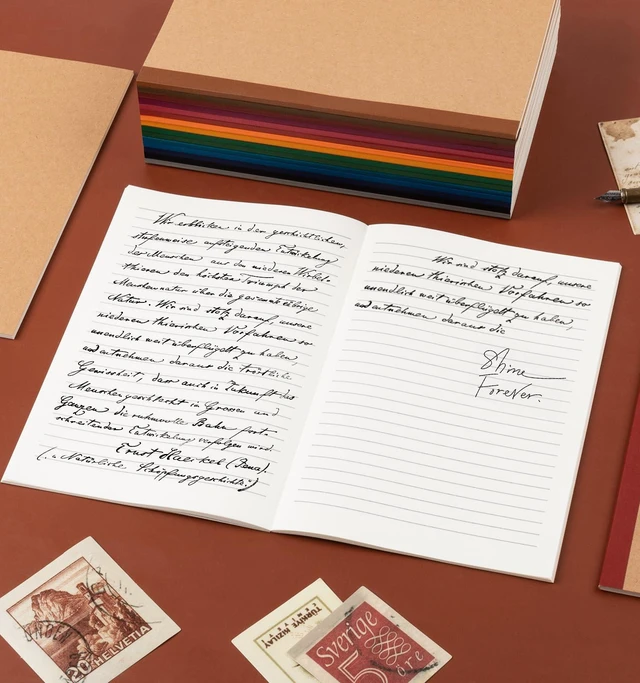 Wir erblicken in der geschichtlichen,
stufenweise aufsteigenden Entwickelung
der Menschen aus den niederen Wirbel-
thieren den höchsten Triumph der
Menschennatur über die gesammte übrige
Natur. Wir sind stolz darauf, unsere
niederen thierischen Vorfahren so
unendlich weit überflügelt zu haben,
und entnehmen daraus die tröstliche
Gewissheit, dass auch in Zukunft das
Menschengeschlecht in Grossen und
Ganzen die ruhmvolle Bahn fort-
schreitender Entwickelung verfolgen wird.
Ernst Haeckel (Jena).
("Natürliche Schöpfungsgeschichte")
Wir sind stolz darauf, unsere
niederen thierischen Vorfahren so
unendlich weit überflügelt zu haben,
und entnehmen daraus die
Shine
ForeVer.
HELVETIA
TÜRKİYE KIZILAY
Sverige
5 öre